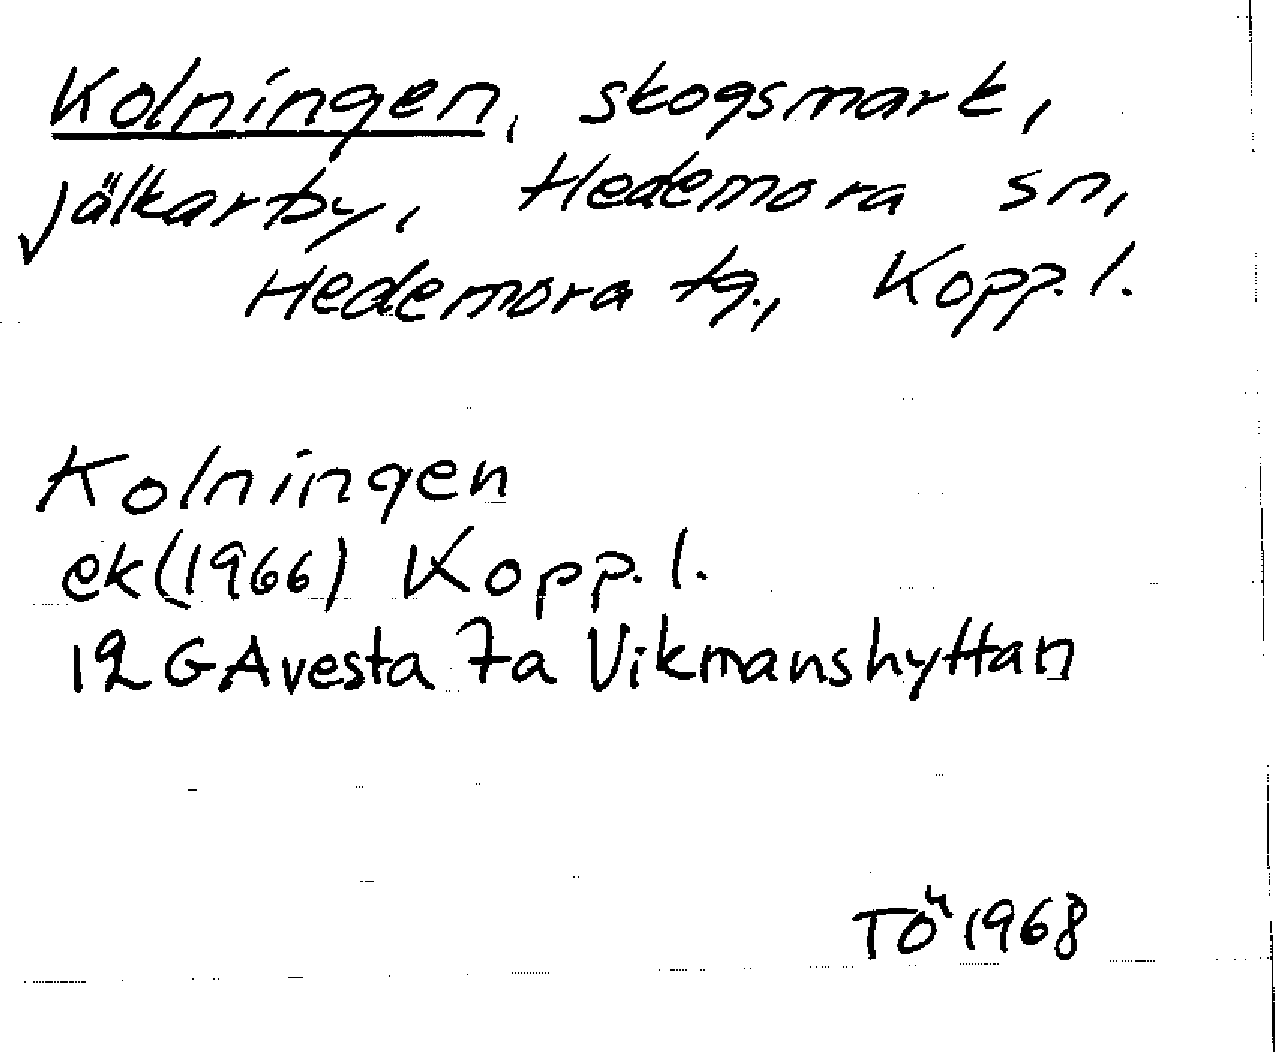 Kolningen, skogsmark,
Jälkarby, Hedemora sn,
Hedemora tg., Kopp. l.
Kolningen
ek (1966) Kopp. l.
12 G Avesta 7a Vikmanshyttan
TÖ 1968